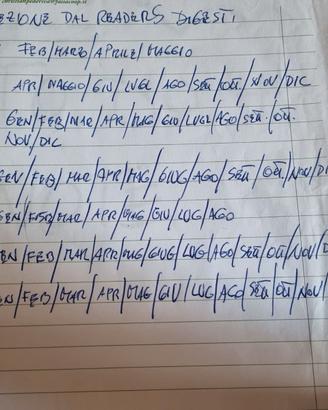 EZIONE DAL READERS DIGEST:
FEB/MARZO/APRILE/MAGGIO
APR/MAGGIO/GIU/LUGL/AGO/SETT/OTT/NOV/DIC
GEN/FEB/MAR/APR/MAG/GIU/LUGL/AGO/SETT/OTT.
NOV/DIC
EN/FEB/MAR/APR/MAG/GIUG/AGO/SETT/OTT/NOV/DI
GEN/FEB/MAR/APR/MAG/GIU/LUG/AGO
EN/FEB/MAR/APR/MAG/GIUG/LUG/AGO/SETT/OTT/NOV/D
N/FEB/MAR/APR/MAG/GIU/LUG/AGO/SETT/OTT/NOV/